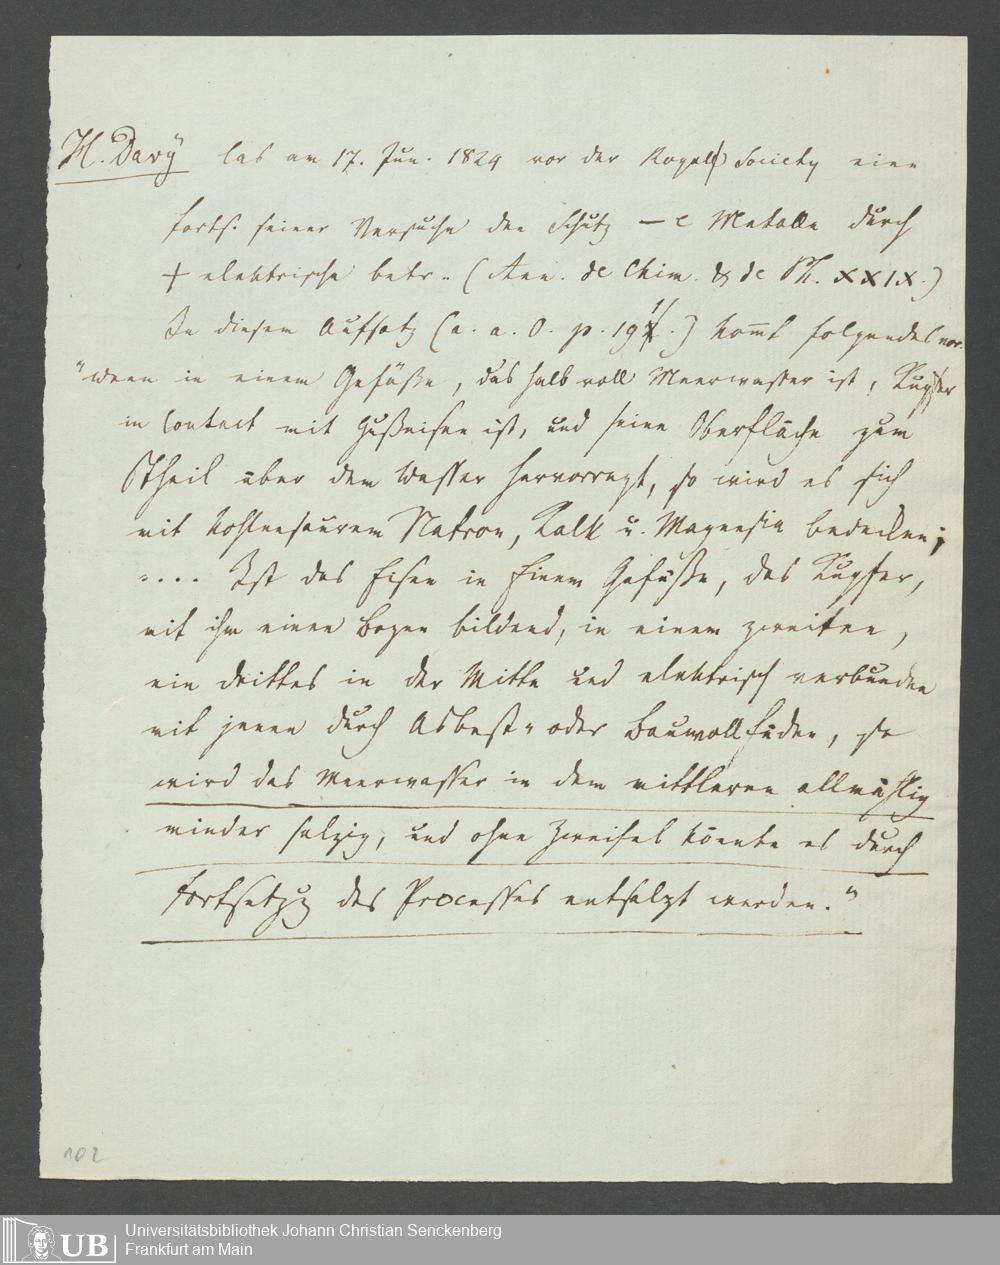 H. Davÿ las am 17. Jun. 1824 vor der Royal Society eine
Forts. seiner Versuche den Schutz – e Metalle durch
+ elektrische betr.. (Ann. de Chim. & de Ph. XXIX.)
In diesem Aufsatz (a. a. O. p. 19.) kom̄t folgendes vor.
"wenn in einem Gefäße, das halb voll Meerwasser ist, Kupfer
in Contact mit Gußeisen ist, und seine Oberfläche zum
Theil über dem Wasser hervorragt, so wird es sich
mit kohlensaurem Natron, Kalk u. Magnesia bedecken;
.... Ist das Eisen in Einem Gefäße, das Kupfer,
mit ihm einen Bogen bildend, in einem zweiten,
ein drittes in der Mitte und elektrisch verbunden
mit jenen durch Asbest- oder Bauwollfäden, so
wird das Meerwasser in dem mittleren allmählig
minder salzig, und ohne Zweifel könnte es durch
Fortsetzg des Processes entsalzt werden."
102
UB
Universitätsbibliothek Johann Christian Senckenberg
Frankfurt am Main